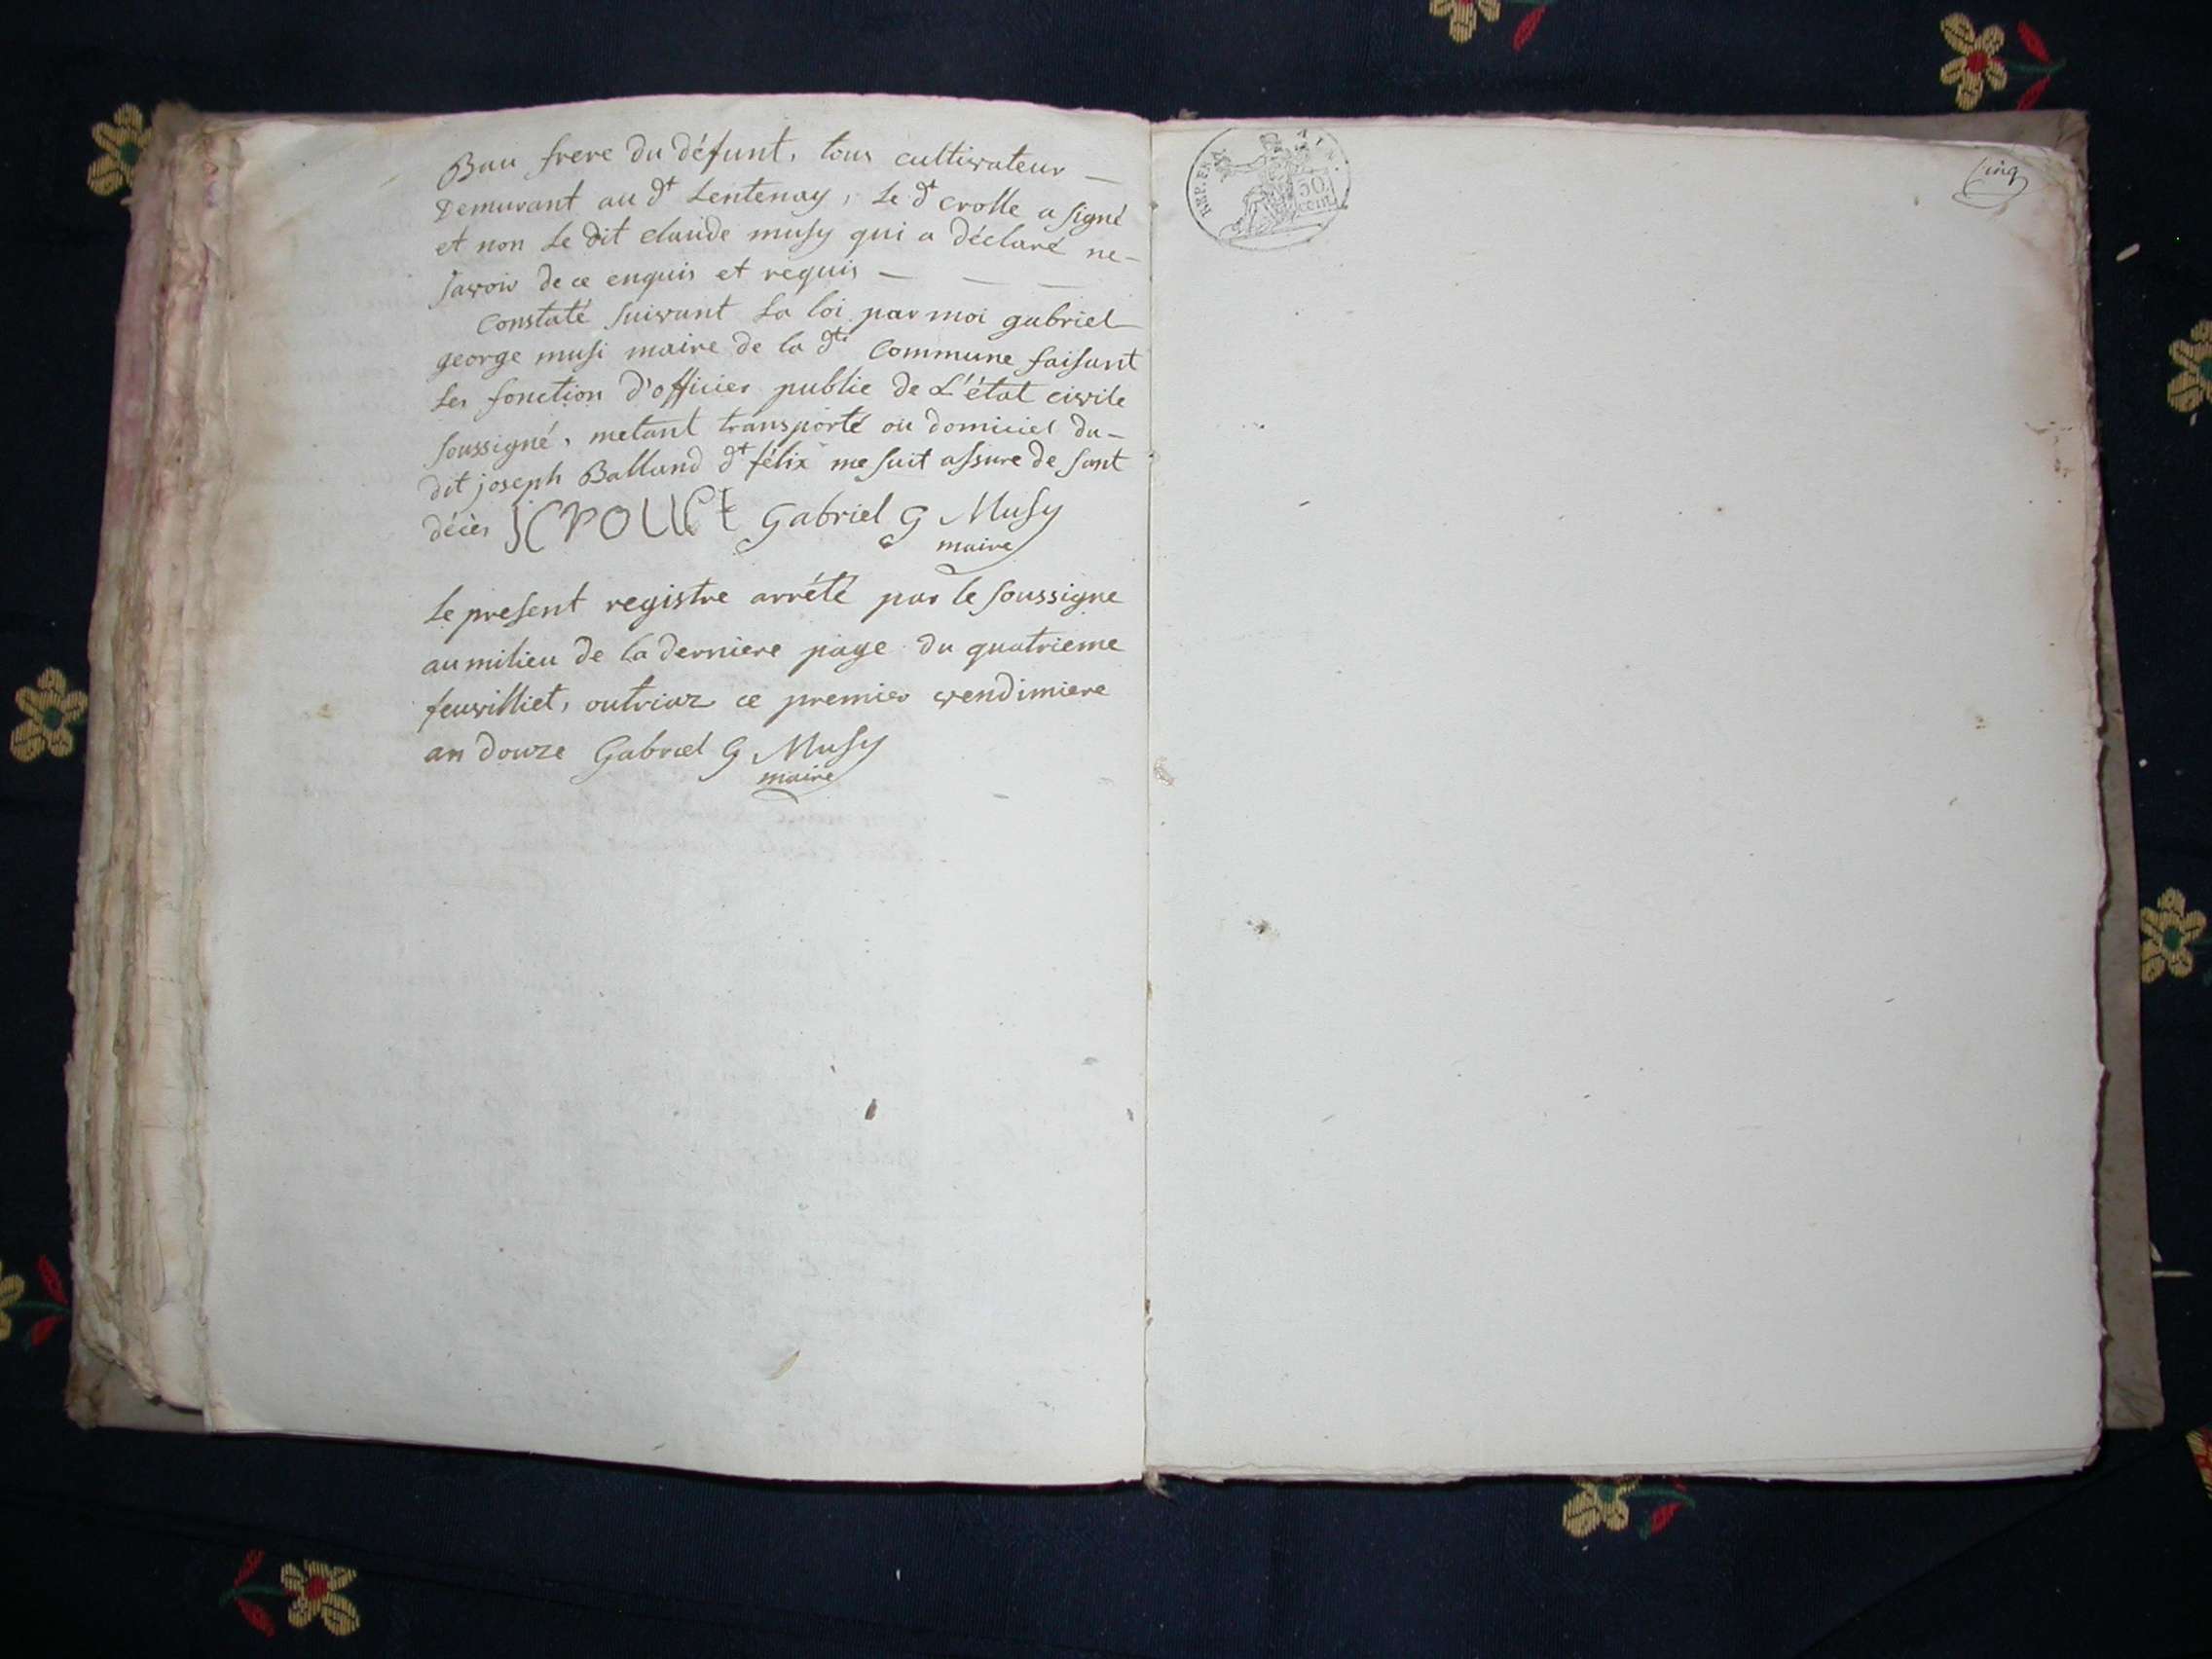 Bau frere du défunt, tous cultivateur —
Demurant au dt Lentenay, Le dt crolle a signé
et non Le dit claude musy qui a déclaré ne-
savoir de ce enquis et requis — — —
Constaté suivant La loi par moi gabriel
george musi maire de la dte Commune faisant
Les fonction d'officier public de L'état civile
soussigné, metant transporté au domiciel du-
dit joseph Balland dt félix me suit assure de sont
décès Gabriel G Musy
maire
Le present registre arrété par le soussigne
au milieu de la derniere page du quatrieme
feuvilliet, outriaz ce premier vendimiere
an douze Gabriel G Musy
maire
REP. FRA.
50
cent
Cinq